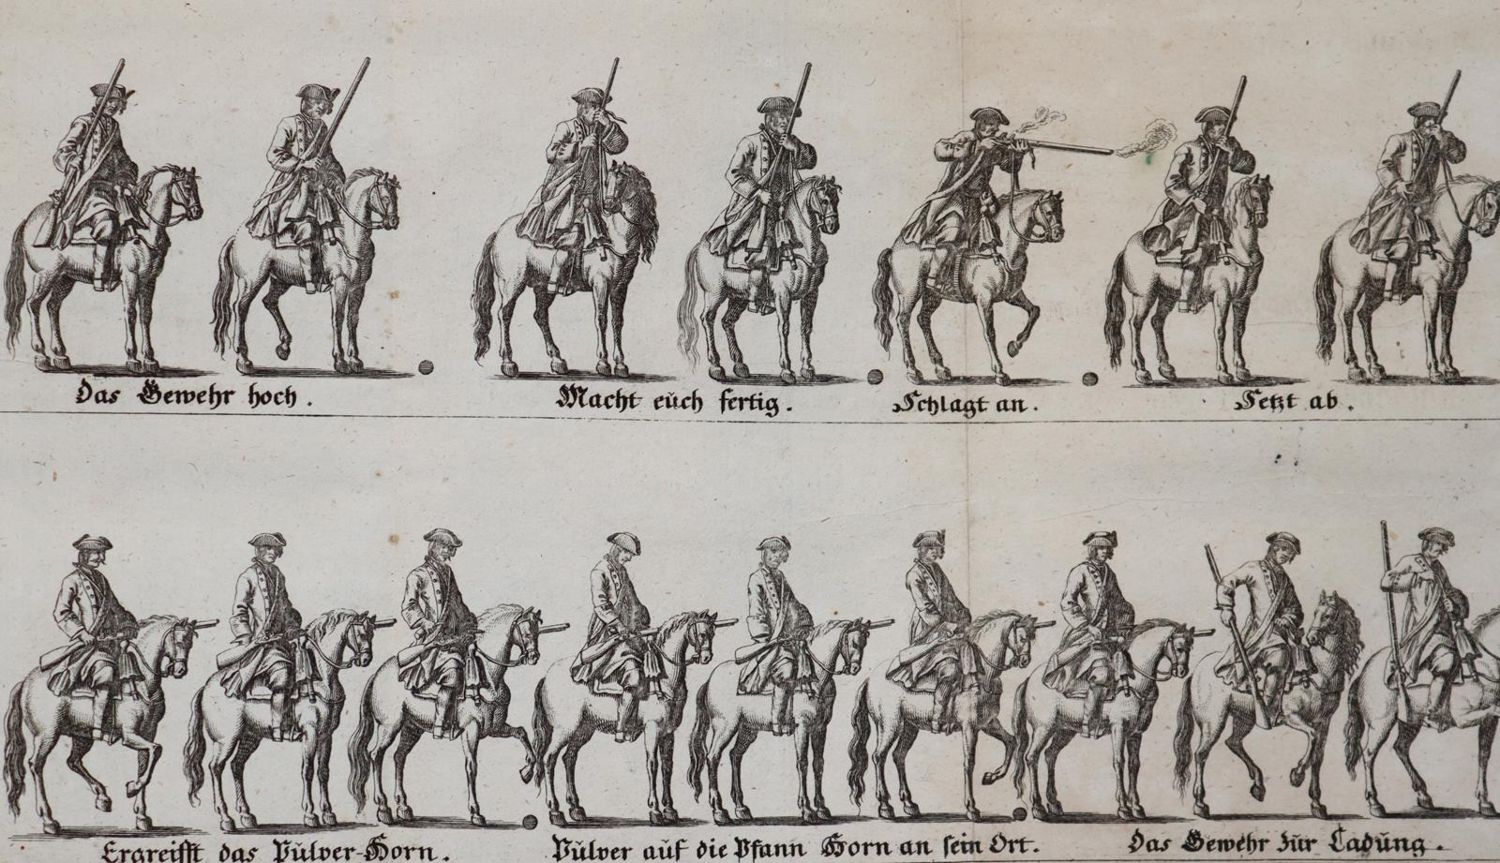 Das Gewehr hoch.
Macht eüch fertig.
Schlagt an.
Setzt ab.
Ergreifft das Pülver-Horn.
Pülver auf die Pfann Horn an sein Ort.
Das Gewehr zür Ladüng.